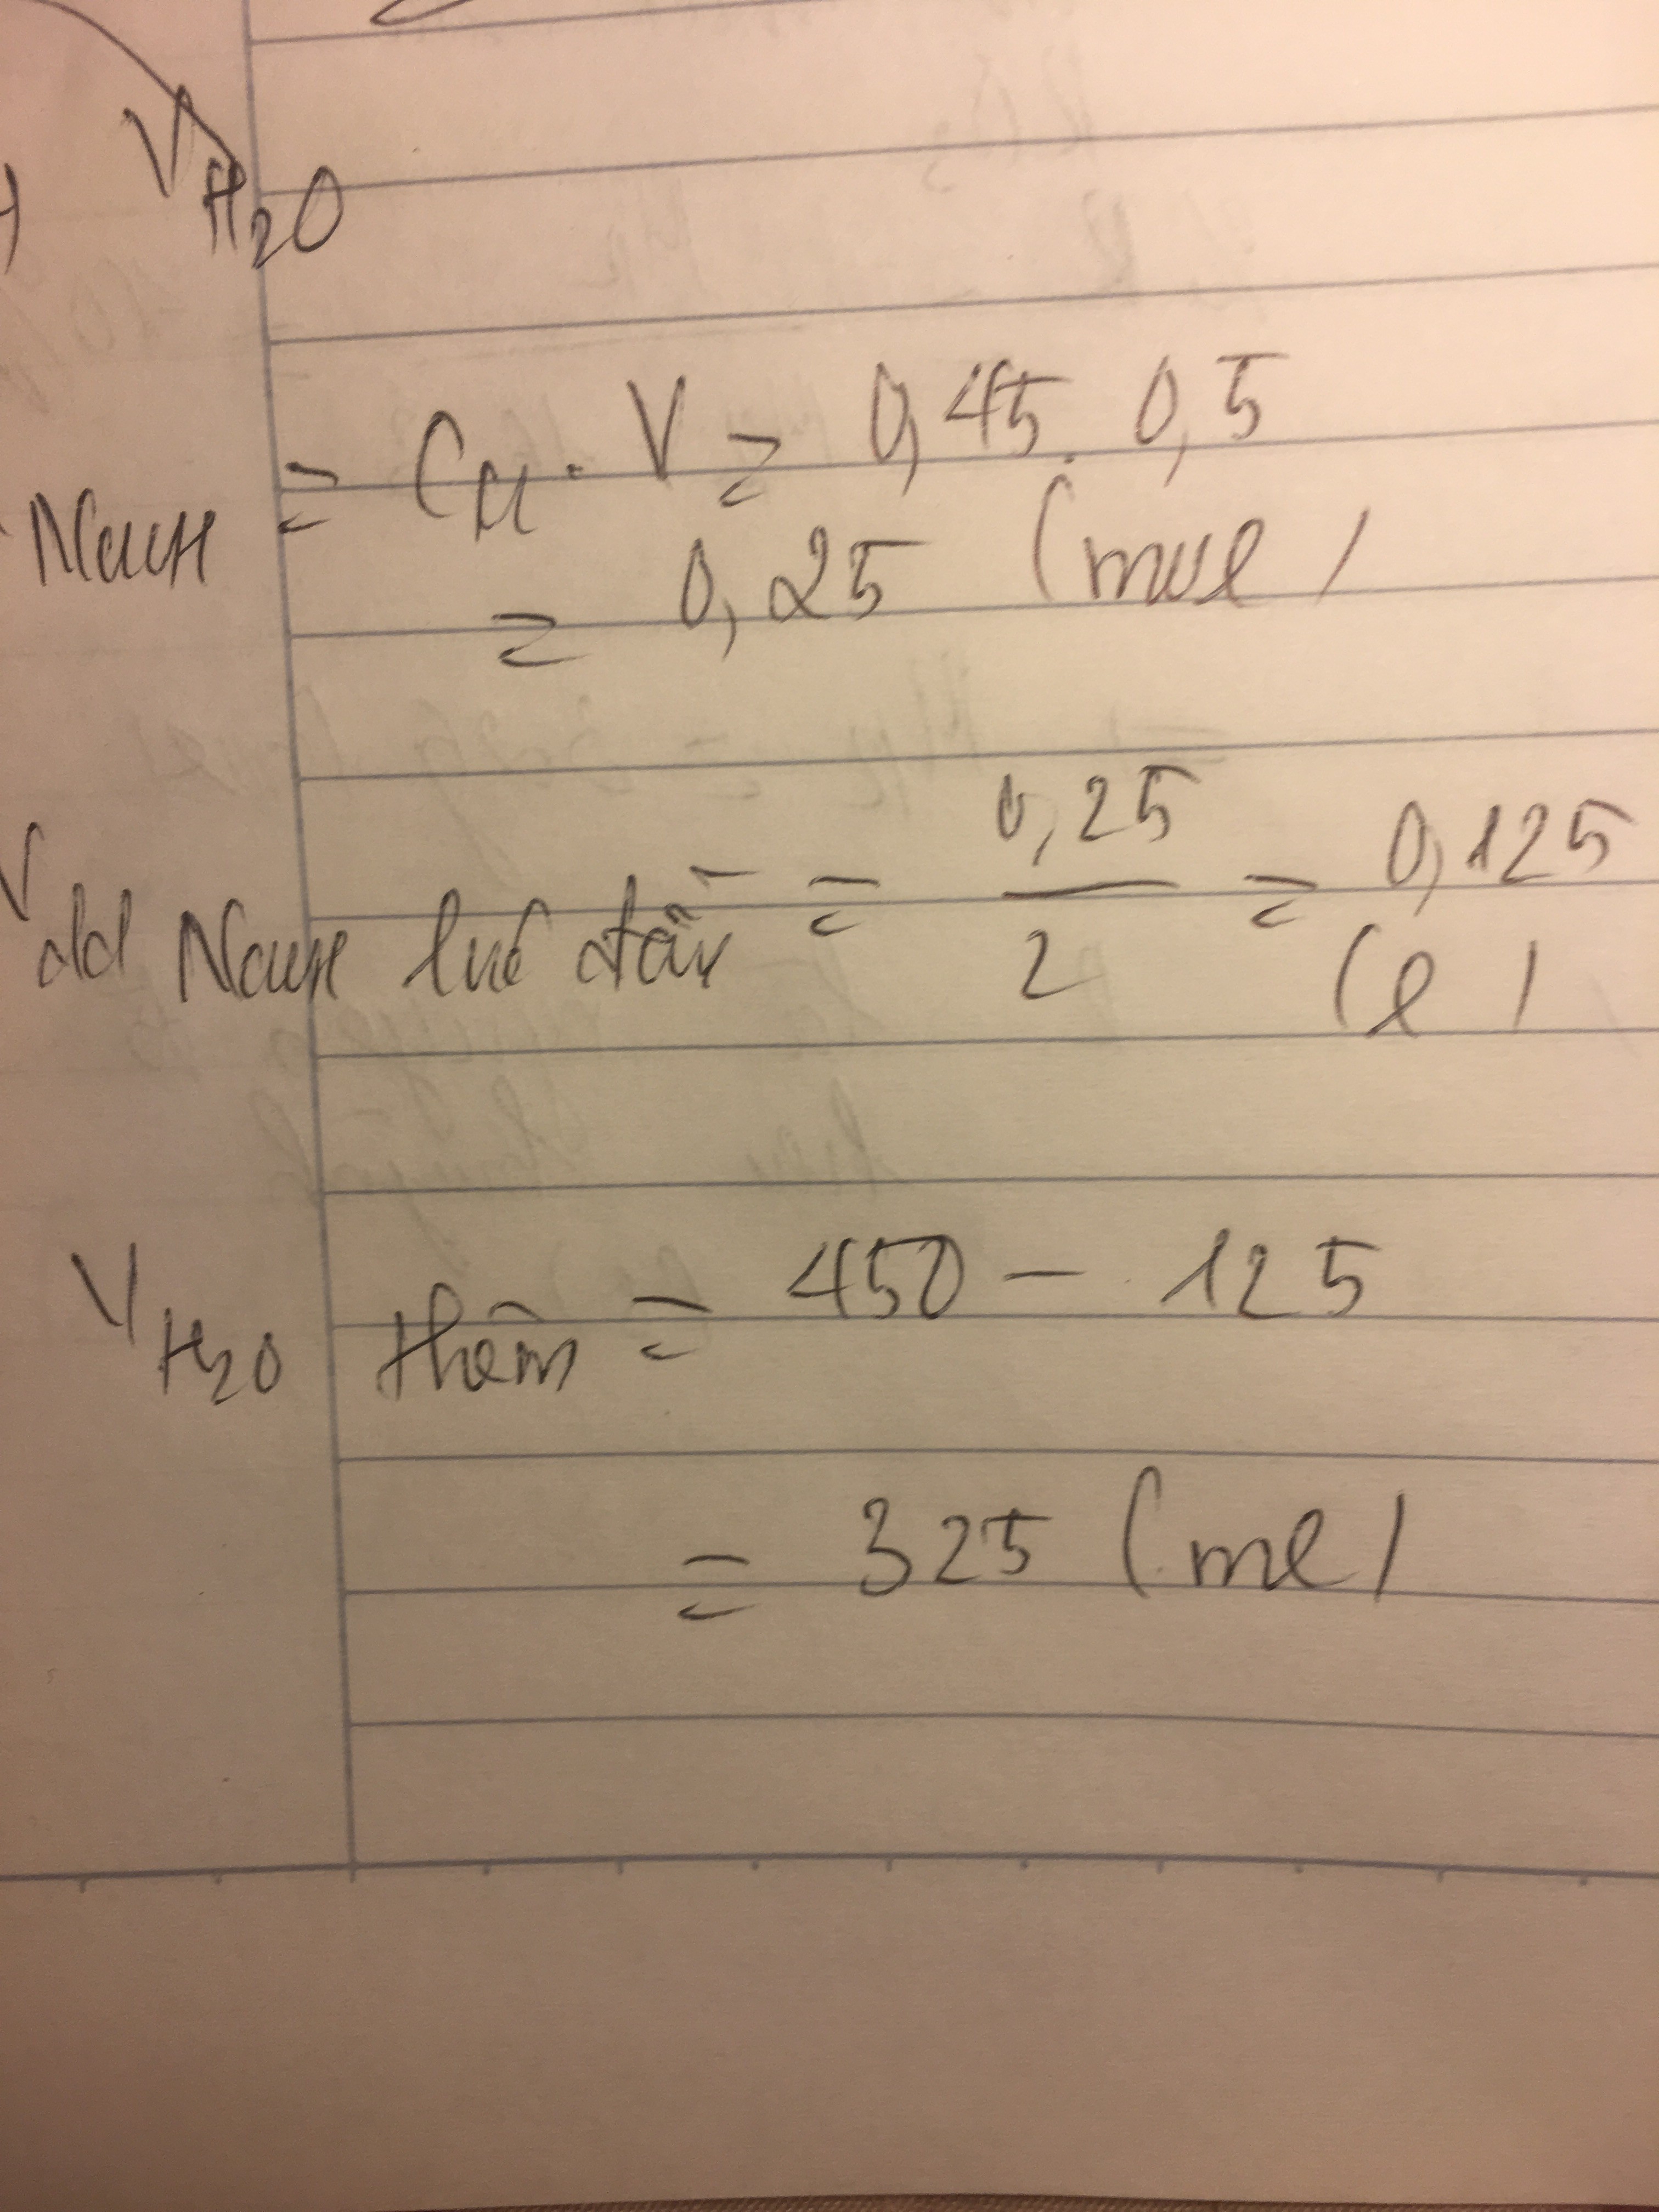 V H₂O
NaOH = CM . V = 0,45 . 0,5
= 0,25 (mol)
V dd NaOH lúc đầu = 0,25 / 2 = 0,125 (l)
V H₂O thêm = 450 - 125
= 325 (ml)